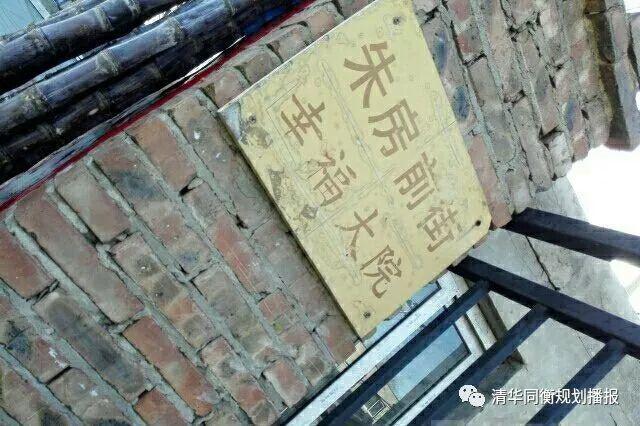 朱房前街
幸福大院
清华同衡规划播报